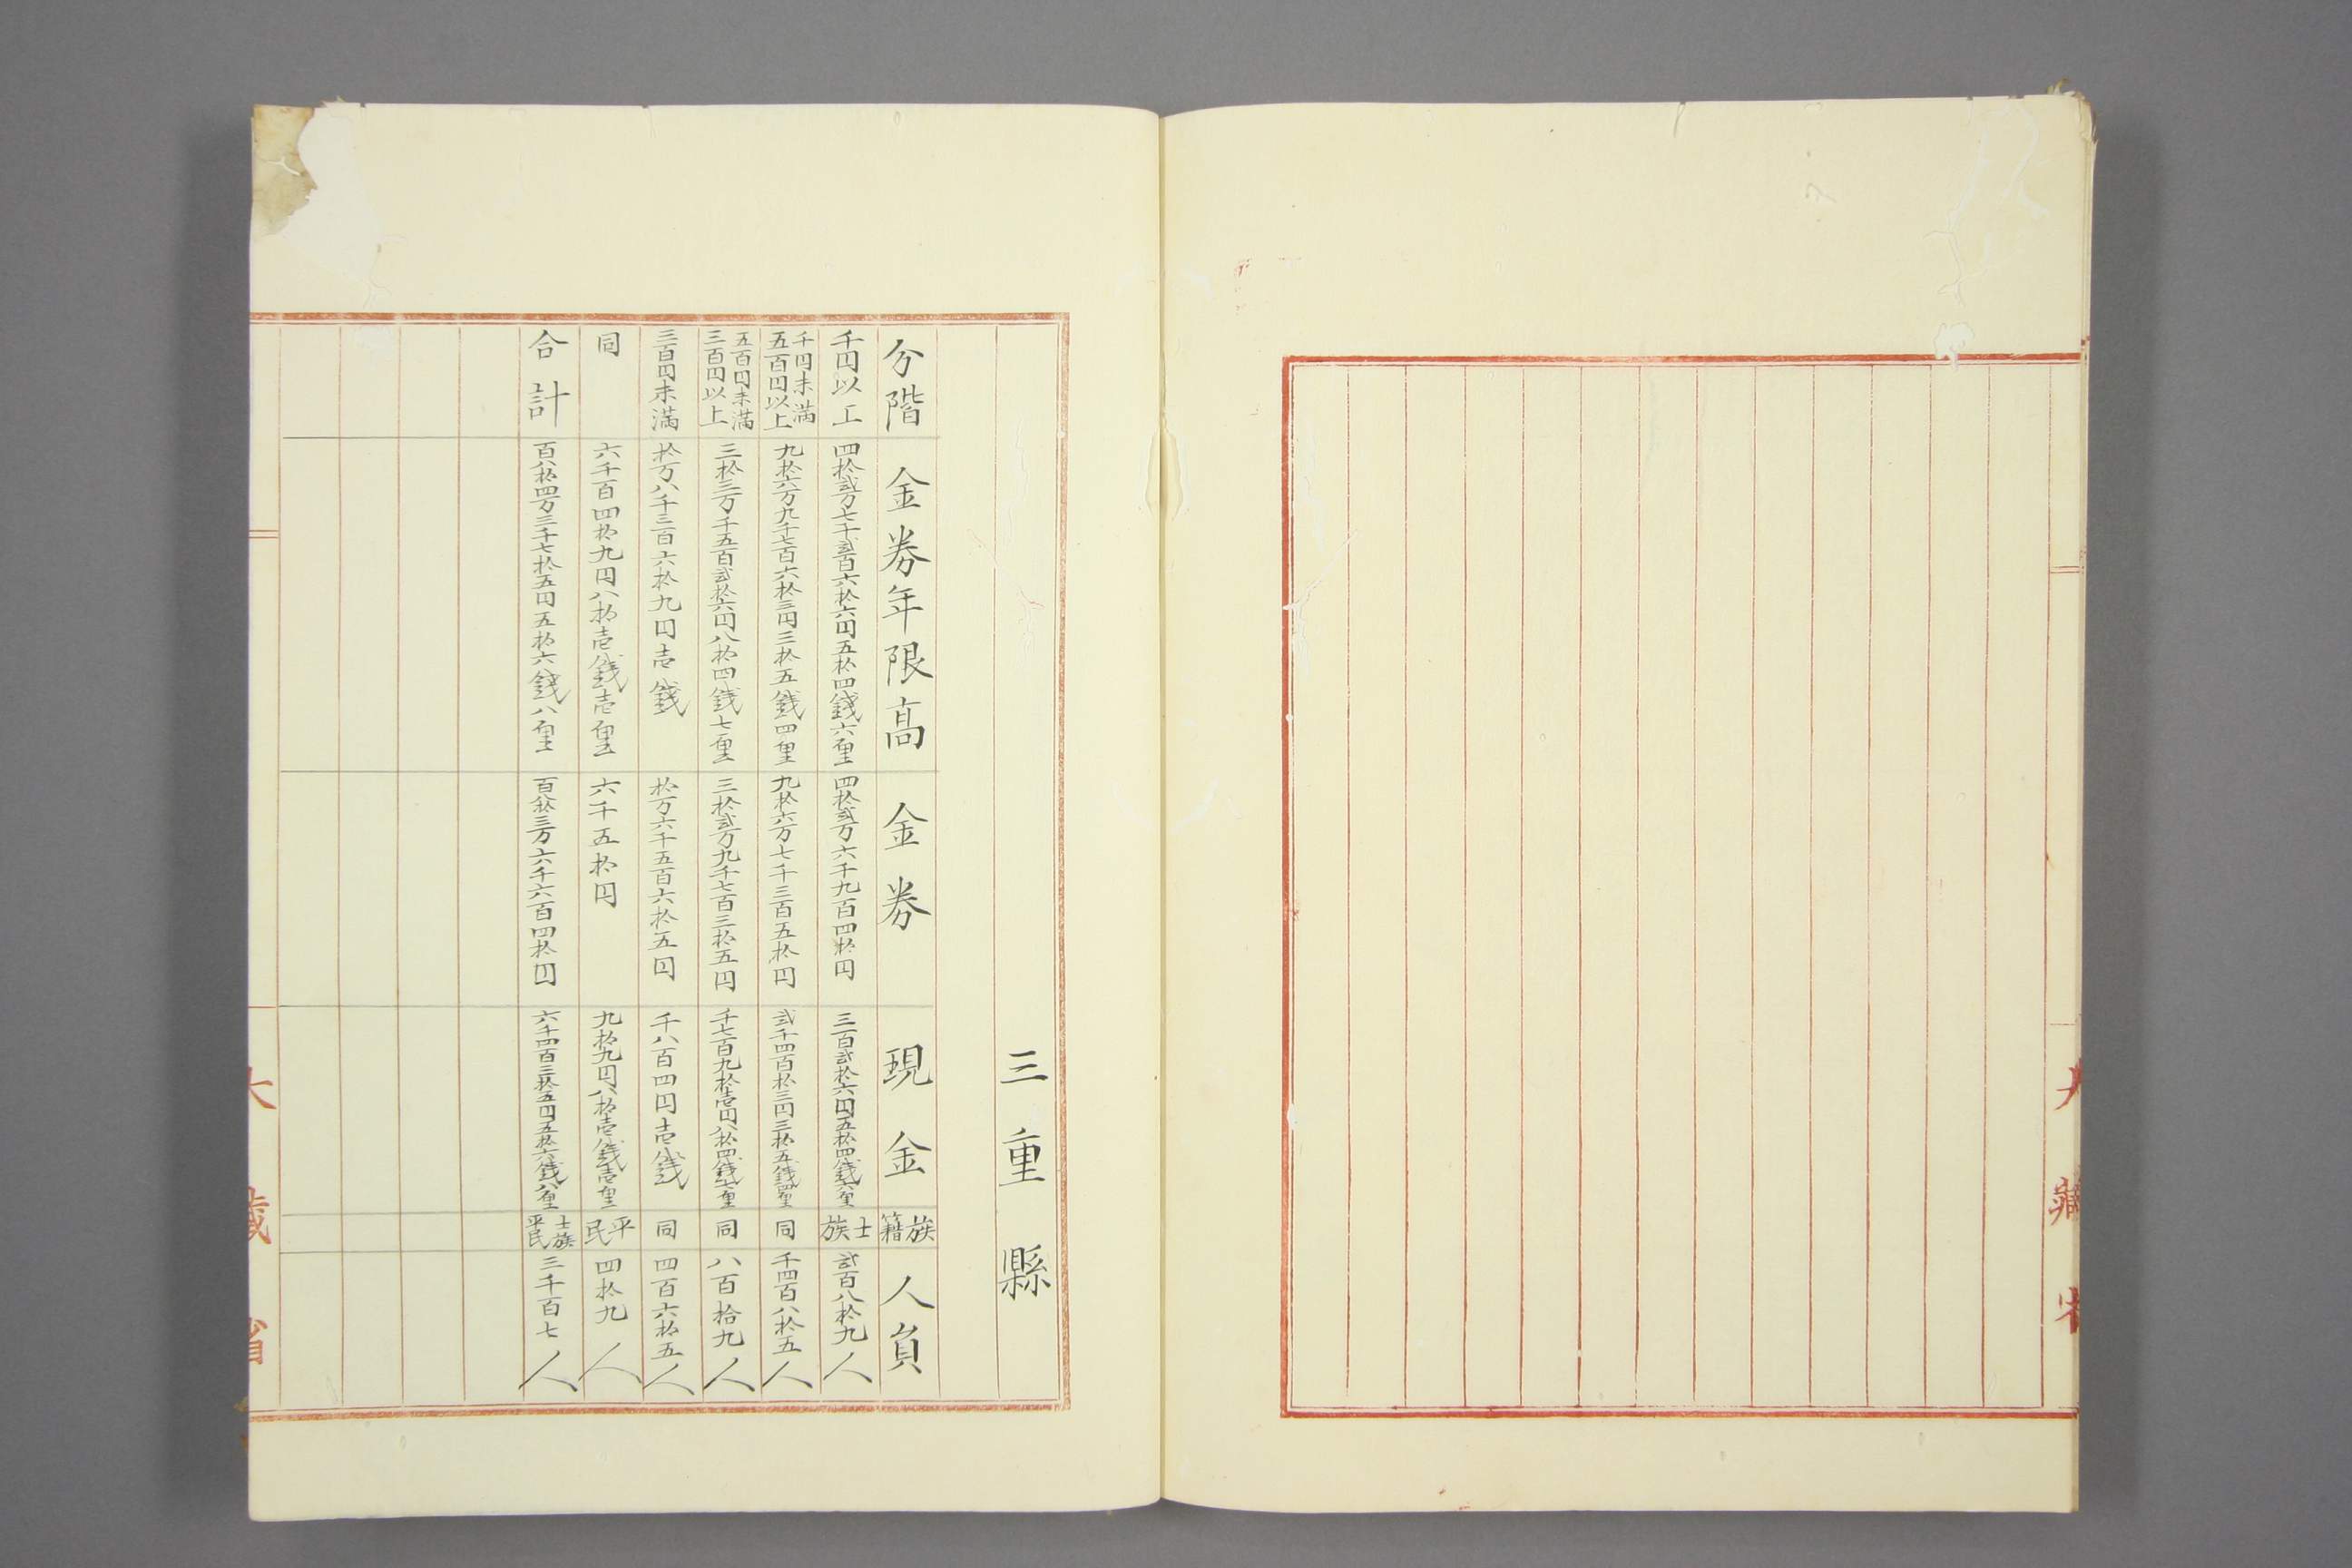 大藏省
三重縣
分階 金券年限高 金券 現金 族籍 人員
千円以上 四拾弐万七千弐百六拾六円五拾四銭六厘 四拾弐万六千九百四拾円 三百弐拾六円五拾四銭六厘 士族 弐百八拾九人
千円未満五百円以上 九拾六万九千七百六拾三円三拾五銭四厘 九拾六万七千三百五拾円 弐千四百拾三円三拾五銭四厘 同 千四百八拾五人
五百円未満三百円以上 三拾三万千五百弐拾六円八拾四銭七厘 三拾弐万九千七百三拾五円 千七百九拾壱円八拾四銭七厘 同 八百拾九人
三百円未満 拾万八千三百六拾九円壱銭 拾万六千五百六拾五円 千八百四円壱銭 同 四百六拾五人
同 六千百四拾九円八拾壱銭壱厘 六千五拾円 九拾九円八拾壱銭壱厘 平民 四拾九人
合計 百八拾四万三千七拾五円五拾六銭八厘 百八拾三万六千六百四拾円 六千四百三拾五円五拾六銭八厘 士族平民 三千百七人
大藏省